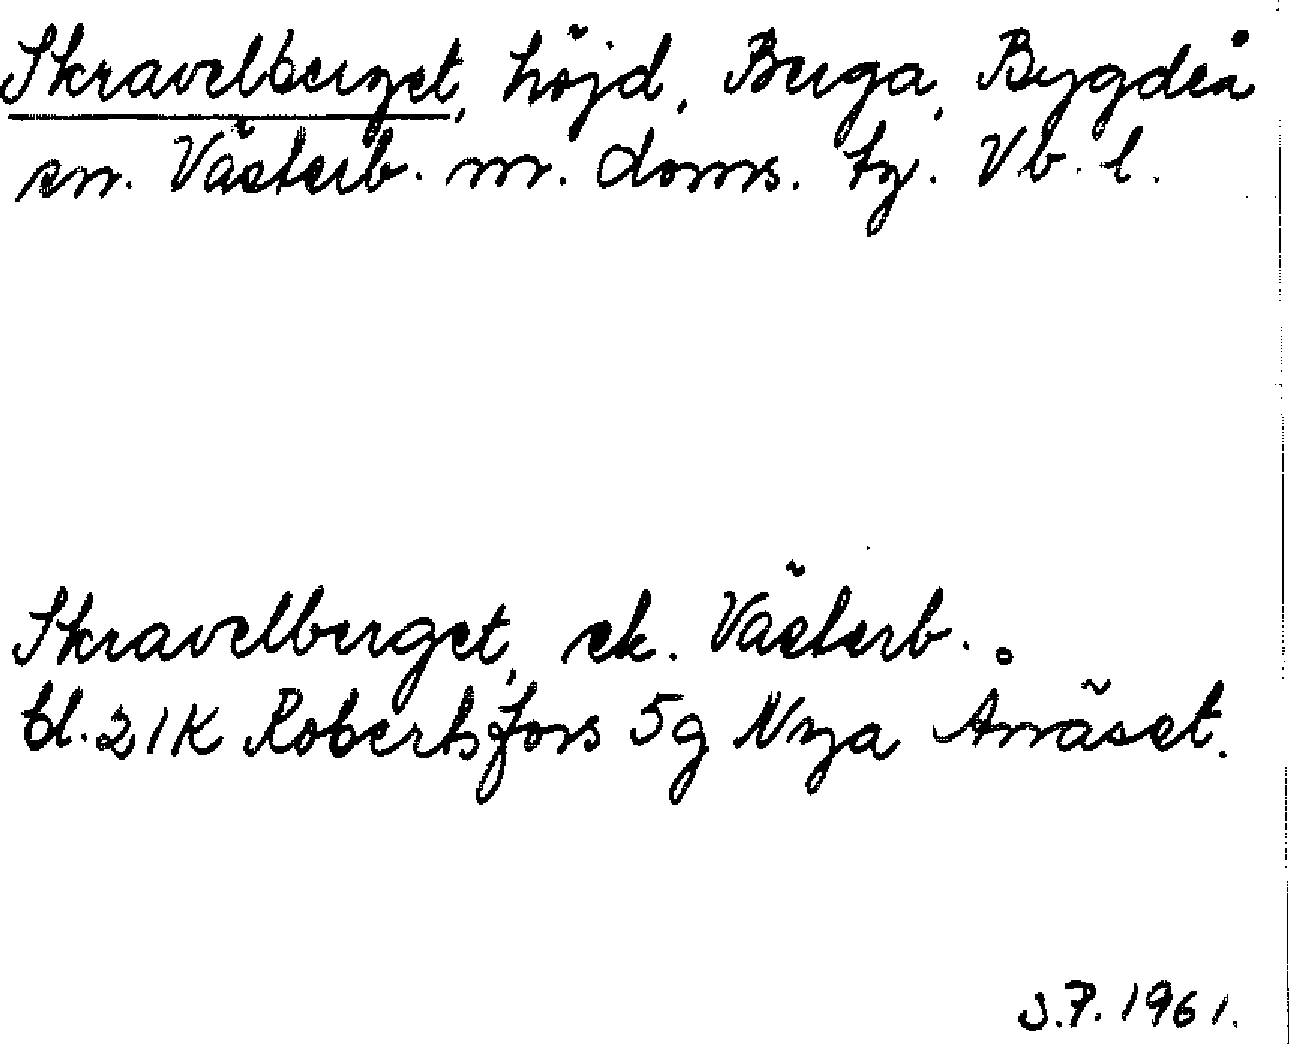 Skravelberget, höjd, Berga, Bygdeå
sn. Västerb. m. doms. tg. Vb. l.
Skravelberget, ek. Västerb.
bl. 21K Robertsfors 5g Nya Anäset.
J.P. 1961.